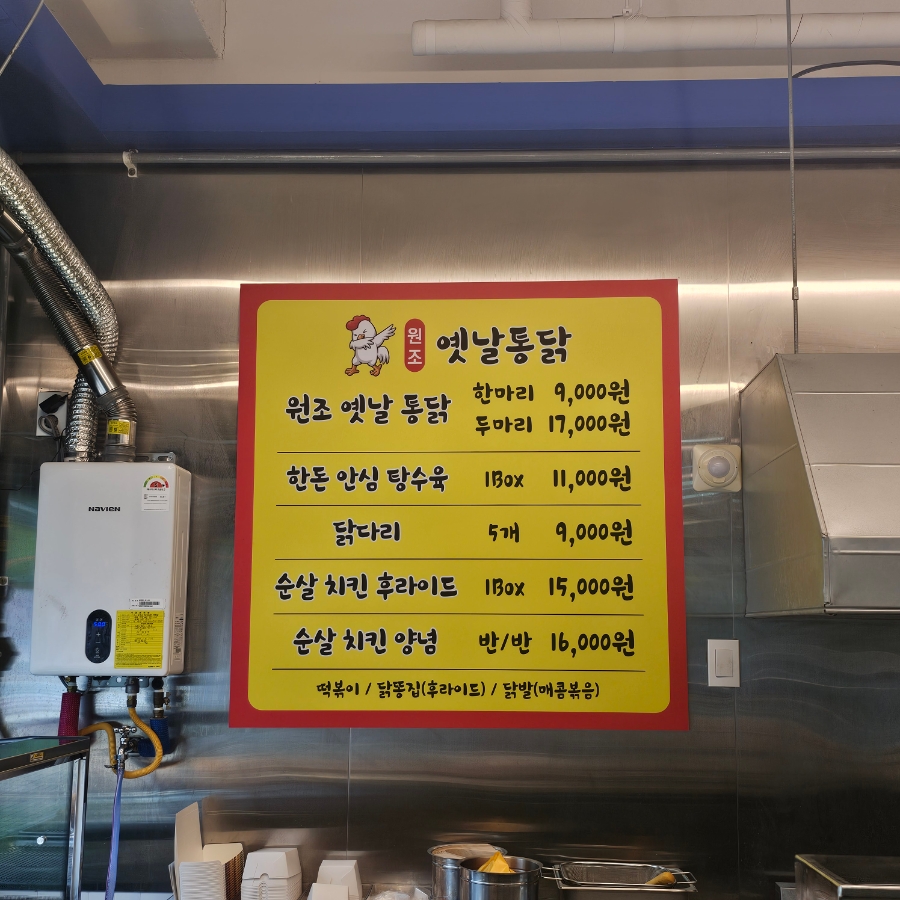 원조 옛날통닭
원조 옛날 통닭 한마리 9,000원
두마리 17,000원
한돈 안심 탕수육 1Box 11,000원
닭다리 5개 9,000원
순살 치킨 후라이드 1Box 15,000원
순살 치킨 양념 반/반 16,000원
떡볶이 / 닭똥집(후라이드) / 닭발(매콤볶음)
NAVIEN